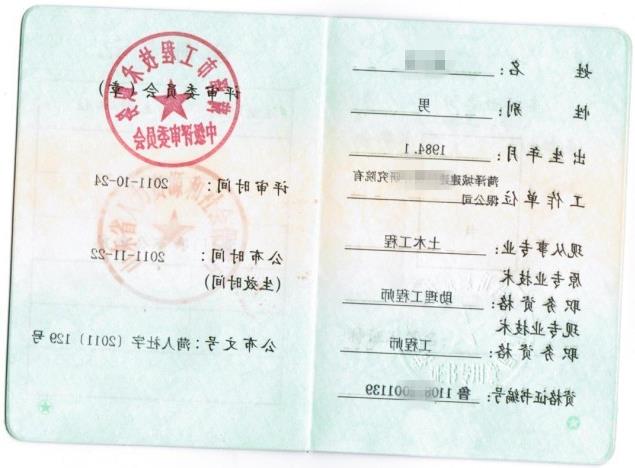 姓 名：
性 别： 男
出生年月： 1984.1
工作单位： 菏泽城建建 研究院有
限公司
现从事专业： 土木工程
原专业技术
职务资格： 助理工程师
现专业技术
职务资格： 工程师
资格证书编号： 鲁 110 001139
市工程技术
中级评审委员会
评审委员会（章）
评审时间： 2011-10-24
公布时间： 2011-11-22
(生效时间)
公布文号：菏人社字（2011）129 号